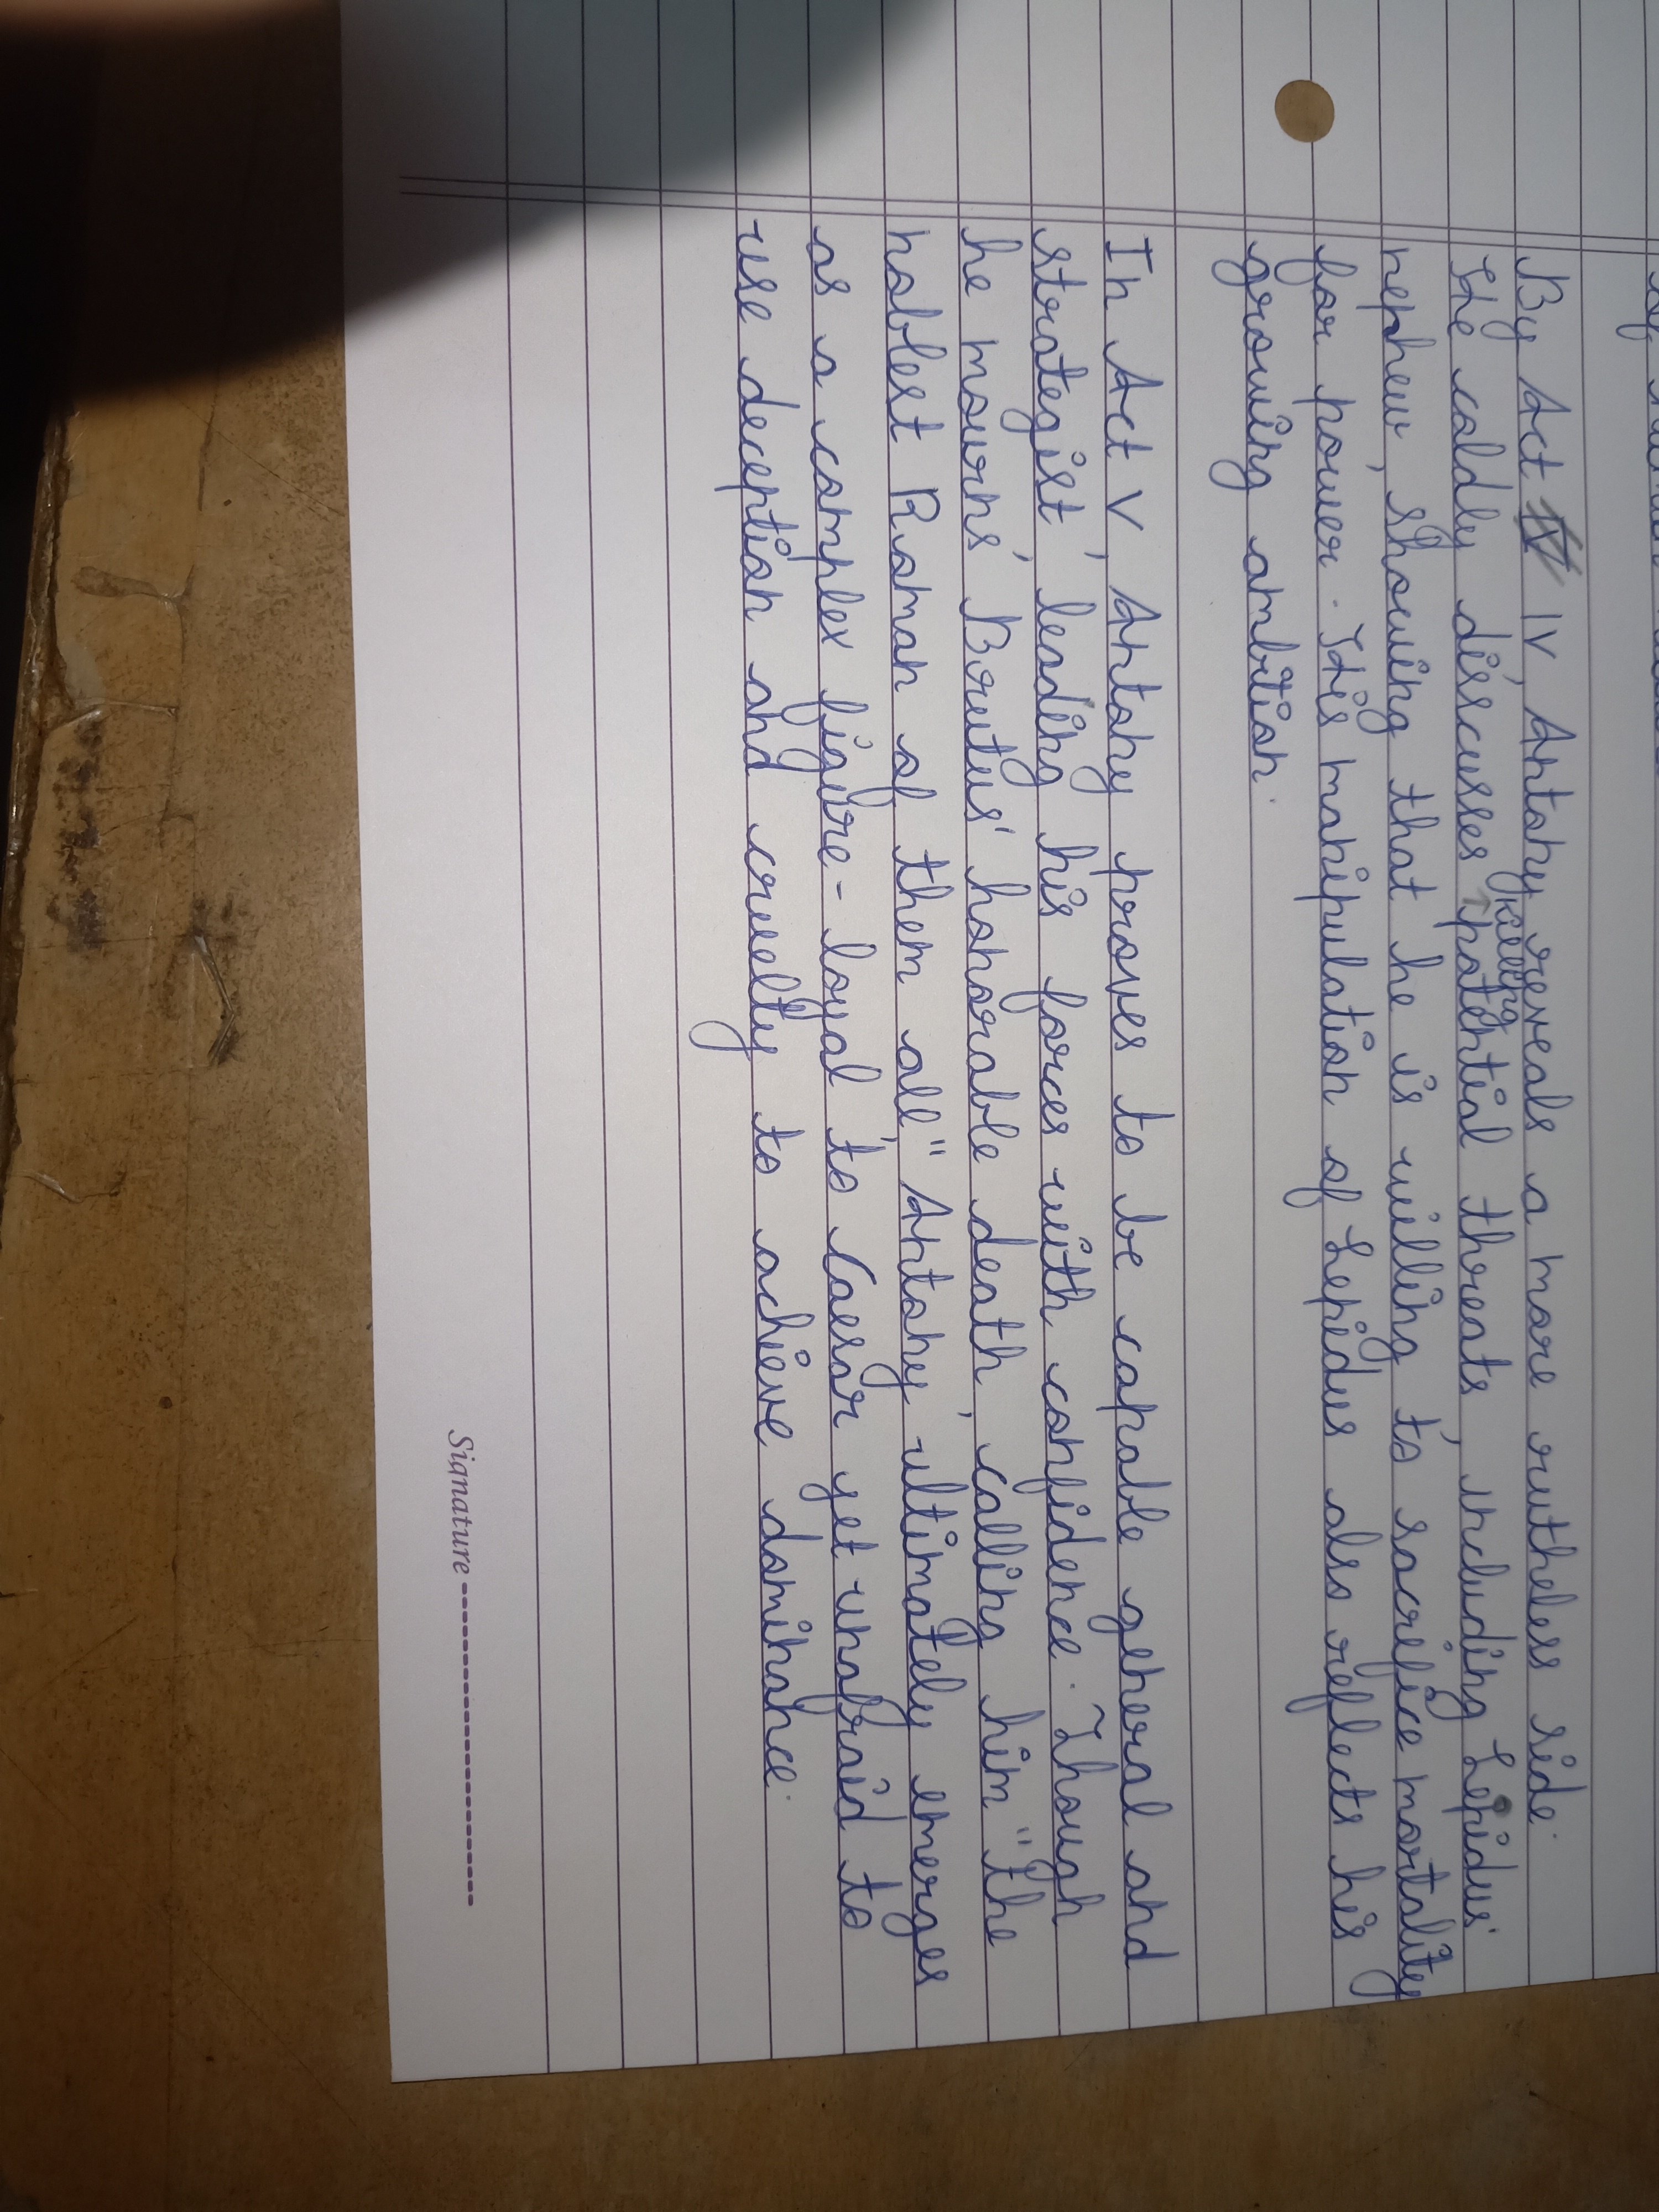 By Act IV, Antony reveals a more ruthless side.
He coldly discusses killing potential threats, including Lepidus'
nephew, showing that he is willing to sacrifice mortality
for power. His manipulation of Lepidus also reflects his
growing ambition.
In Act V, Antony proves to be capable general and
strategist, leading his forces with confidence. Though
he mourns, Brutus' honorable death, calling him "the
noblest Roman of them all" Antony ultimately emerges
as a complex figure - loyal to Caesar yet unafraid to
use deception and cruelty to achieve dominance.
Signature